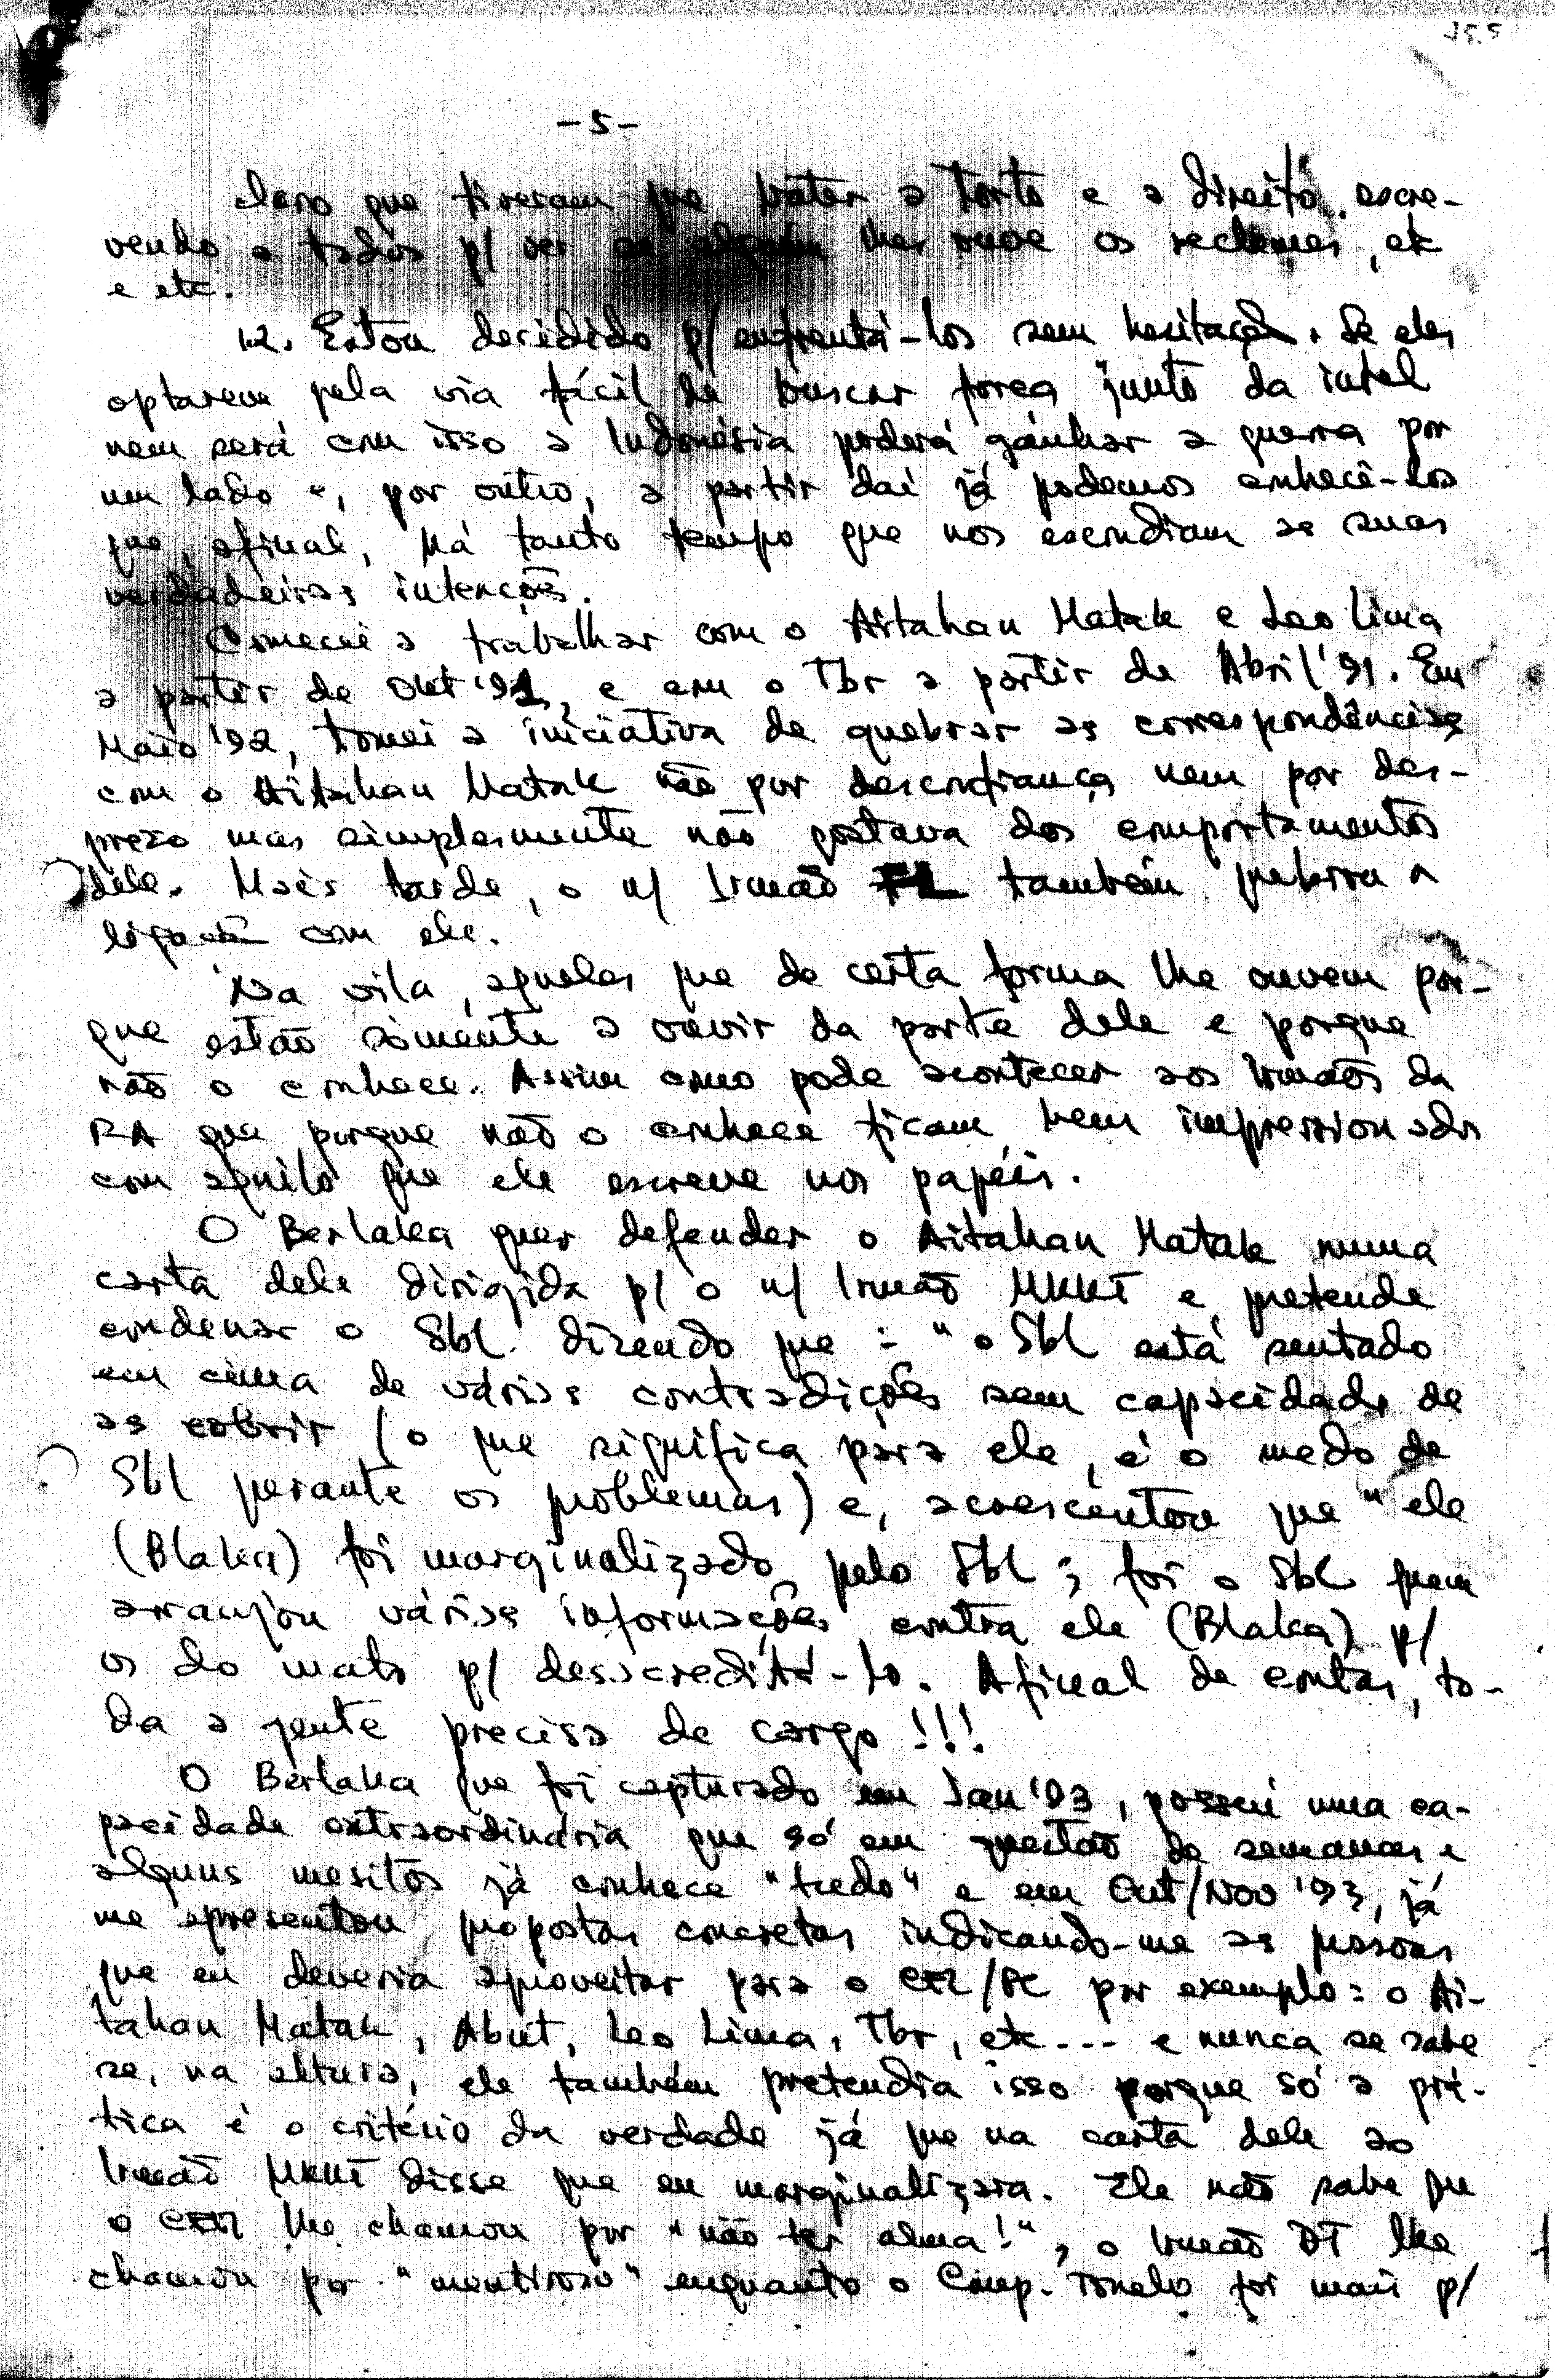 - 5 -
claro que tiveram que bater a torto e a direito, escre-
vendo a todos p/ ver se alguém lhes ouve os reclames, etc
e etc.
12. Estou decidido p/ enfrentá-los sem hesitação. Se eles
optarem pela via fácil de buscar força junto da intel
nem será com isso a Indonésia poderá ganhar a guerra por
um lado e, por outro, a partir daí já podemos conhecê-los
que, afinal, há tanto tempo que nos escondiam as suas
verdadeiras intenções.
Comecei a trabalhar com o Aitahan Matak e Leo Lima
a partir de Okt '91, e com o Tbr a partir de Abril '91. Em
Maio '92, tomei a iniciativa de quebrar as correspondências
com o Aitahan Matak não por desconfiança nem por des-
prezo mas simplesmente não gostava dos comportamentos
dele. Mais tarde, o n/ Irmão FL também quebrou a
ligação com ele.
Na vila, aqueles que de certa forma lhe ouvem por-
que estão sómente a ouvir da parte dele e porque
não o conhece. Assim como pode acontecer aos Irmãos da
RA que porque não o conhece ficam bem impressionados
com aquilo que ele escreve nos papéis.
O Berlaka quer defender o Aitahan Matak numa
carta dele dirigida p/ o n/ Irmão MKKT e pretende
condenar o Sbl. dizendo que : "o Sbl está sentado
em cima de várias contradições sem capacidade de
as cobrir (o que significa para ele, é o medo de
Sbl perante os problemas) e, acrescentou que "ele
(Blaka) foi marginalizado pelo Sbl ; foi o Sbl quem
arranjou várias informações contra ele (Blaka) p/
os do mato p/ desacreditá-lo. Afinal de contas, to-
da a gente precisa de cargo !!!
O Berlaka que foi capturado em Jan '93, possui uma ca-
pacidade extraordinária que só em questão de semanas e
alguns mesitos já conhece "tudo" e em Out/Nov '93, já
me apresentou propostas concretas indicando-me as pessoas
que eu deveria aproveitar para o CER/FC por exemplo : o Ai-
tahan Matak, Abut, Leo Lima, Tbr, etc... e nunca se sabe
se, na altura, ele também pretendia isso porque só a prá-
tica é o critério da verdade já que na carta dele ao
Irmão MKKT disse que eu marginalizara. Ele não sabe que
o CER lhe chamou por "não ter alma!", o Irmão DT lhe
chamou por "mentiroso" enquanto o Comp. Konelo foi mais p/